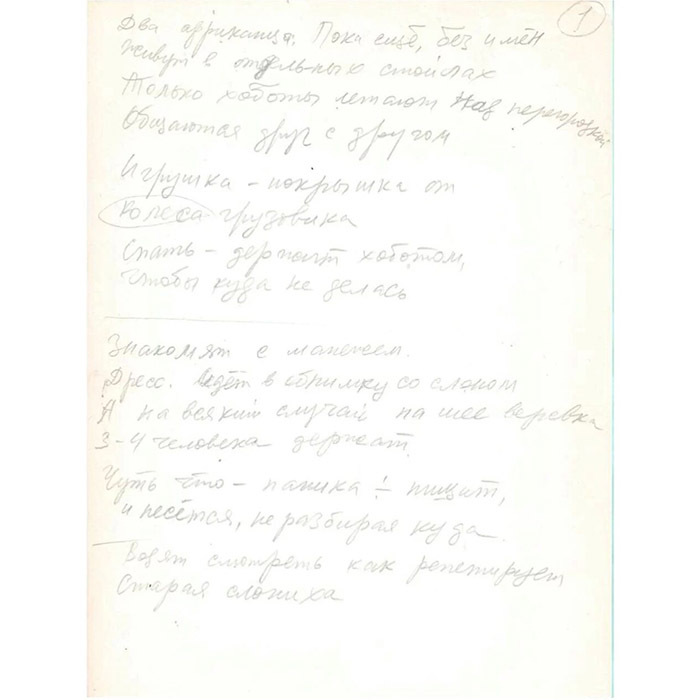 1
Два африканца. Пока ещё, без имён
Живут в отдельных стойлах
Только хоботы летают над перегородкой
Общаются друг с другом
Игрушка – покрышка от
колеса грузовика
Спать – держит хоботом,
чтобы куда не делась
Знакомят с манежем.
Дресс. ведёт в обнимку со слоном
А на всякий случай на шее верёвка
3-4 человека держат.
Чуть что – паника! – пищит,
и несётся, не разбирая куда.
Водят смотреть как репетирует
Старая слониха